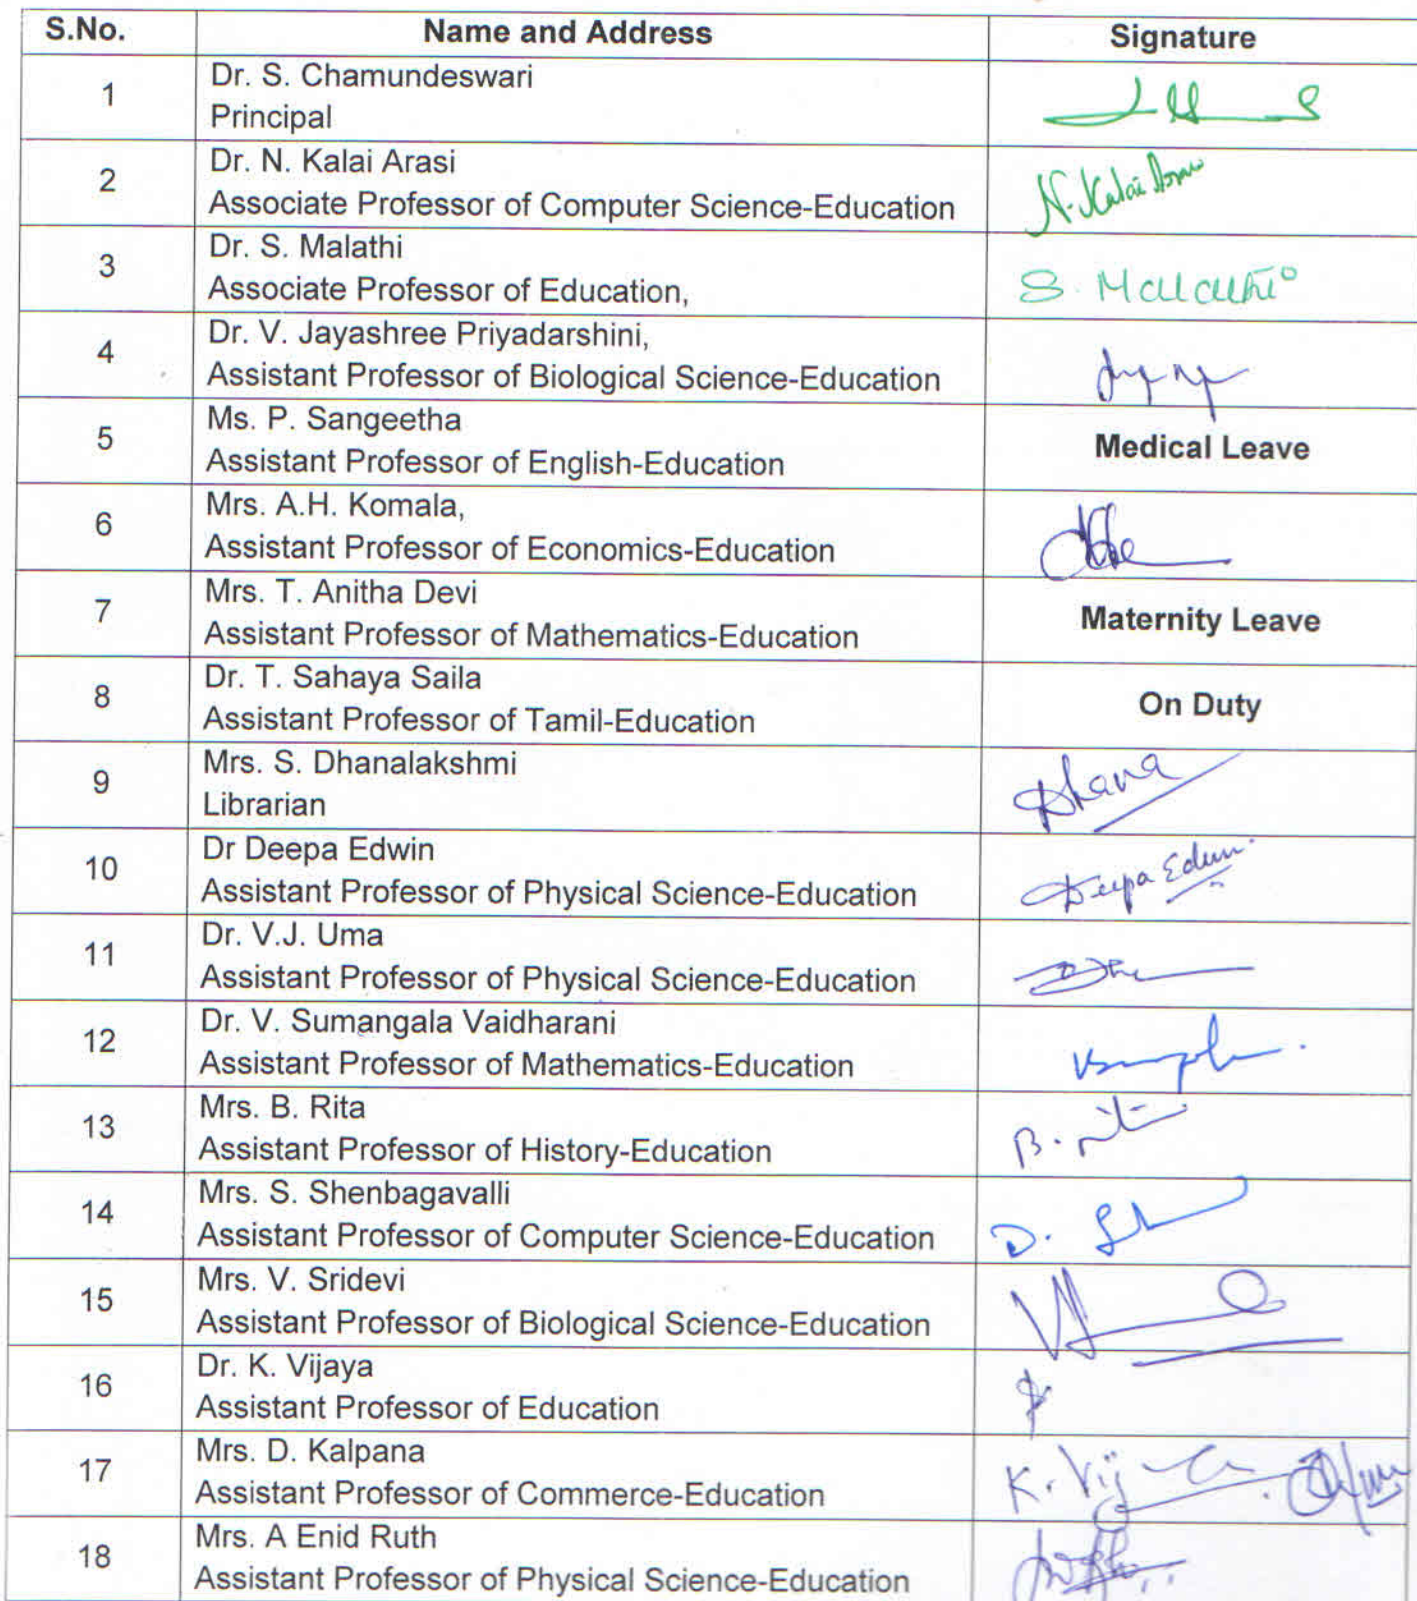 S.No. Name and Address Signature
1 Dr. S. Chamundeswari
Principal
2 Dr. N. Kalai Arasi N. Kalai Arasi
Associate Professor of Computer Science-Education
3 Dr. S. Malathi
Associate Professor of Education, S. Malathi
4 Dr. V. Jayashree Priyadarshini,
Assistant Professor of Biological Science-Education
5 Ms. P. Sangeetha Medical Leave
Assistant Professor of English-Education
6 Mrs. A.H. Komala,
Assistant Professor of Economics-Education
7 Mrs. T. Anitha Devi Maternity Leave
Assistant Professor of Mathematics-Education
8 Dr. T. Sahaya Saila On Duty
Assistant Professor of Tamil-Education
9 Mrs. S. Dhanalakshmi Dhana
Librarian
10 Dr Deepa Edwin Deepa Edwin.
Assistant Professor of Physical Science-Education
11 Dr. V.J. Uma
Assistant Professor of Physical Science-Education
12 Dr. V. Sumangala Vaidharani
Assistant Professor of Mathematics-Education
13 Mrs. B. Rita B. Rita
Assistant Professor of History-Education
14 Mrs. S. Shenbagavalli
Assistant Professor of Computer Science-Education D.
15 Mrs. V. Sridevi
Assistant Professor of Biological Science-Education
16 Dr. K. Vijaya
Assistant Professor of Education
17 Mrs. D. Kalpana K. Vijaya
Assistant Professor of Commerce-Education
18 Mrs. A Enid Ruth
Assistant Professor of Physical Science-Education